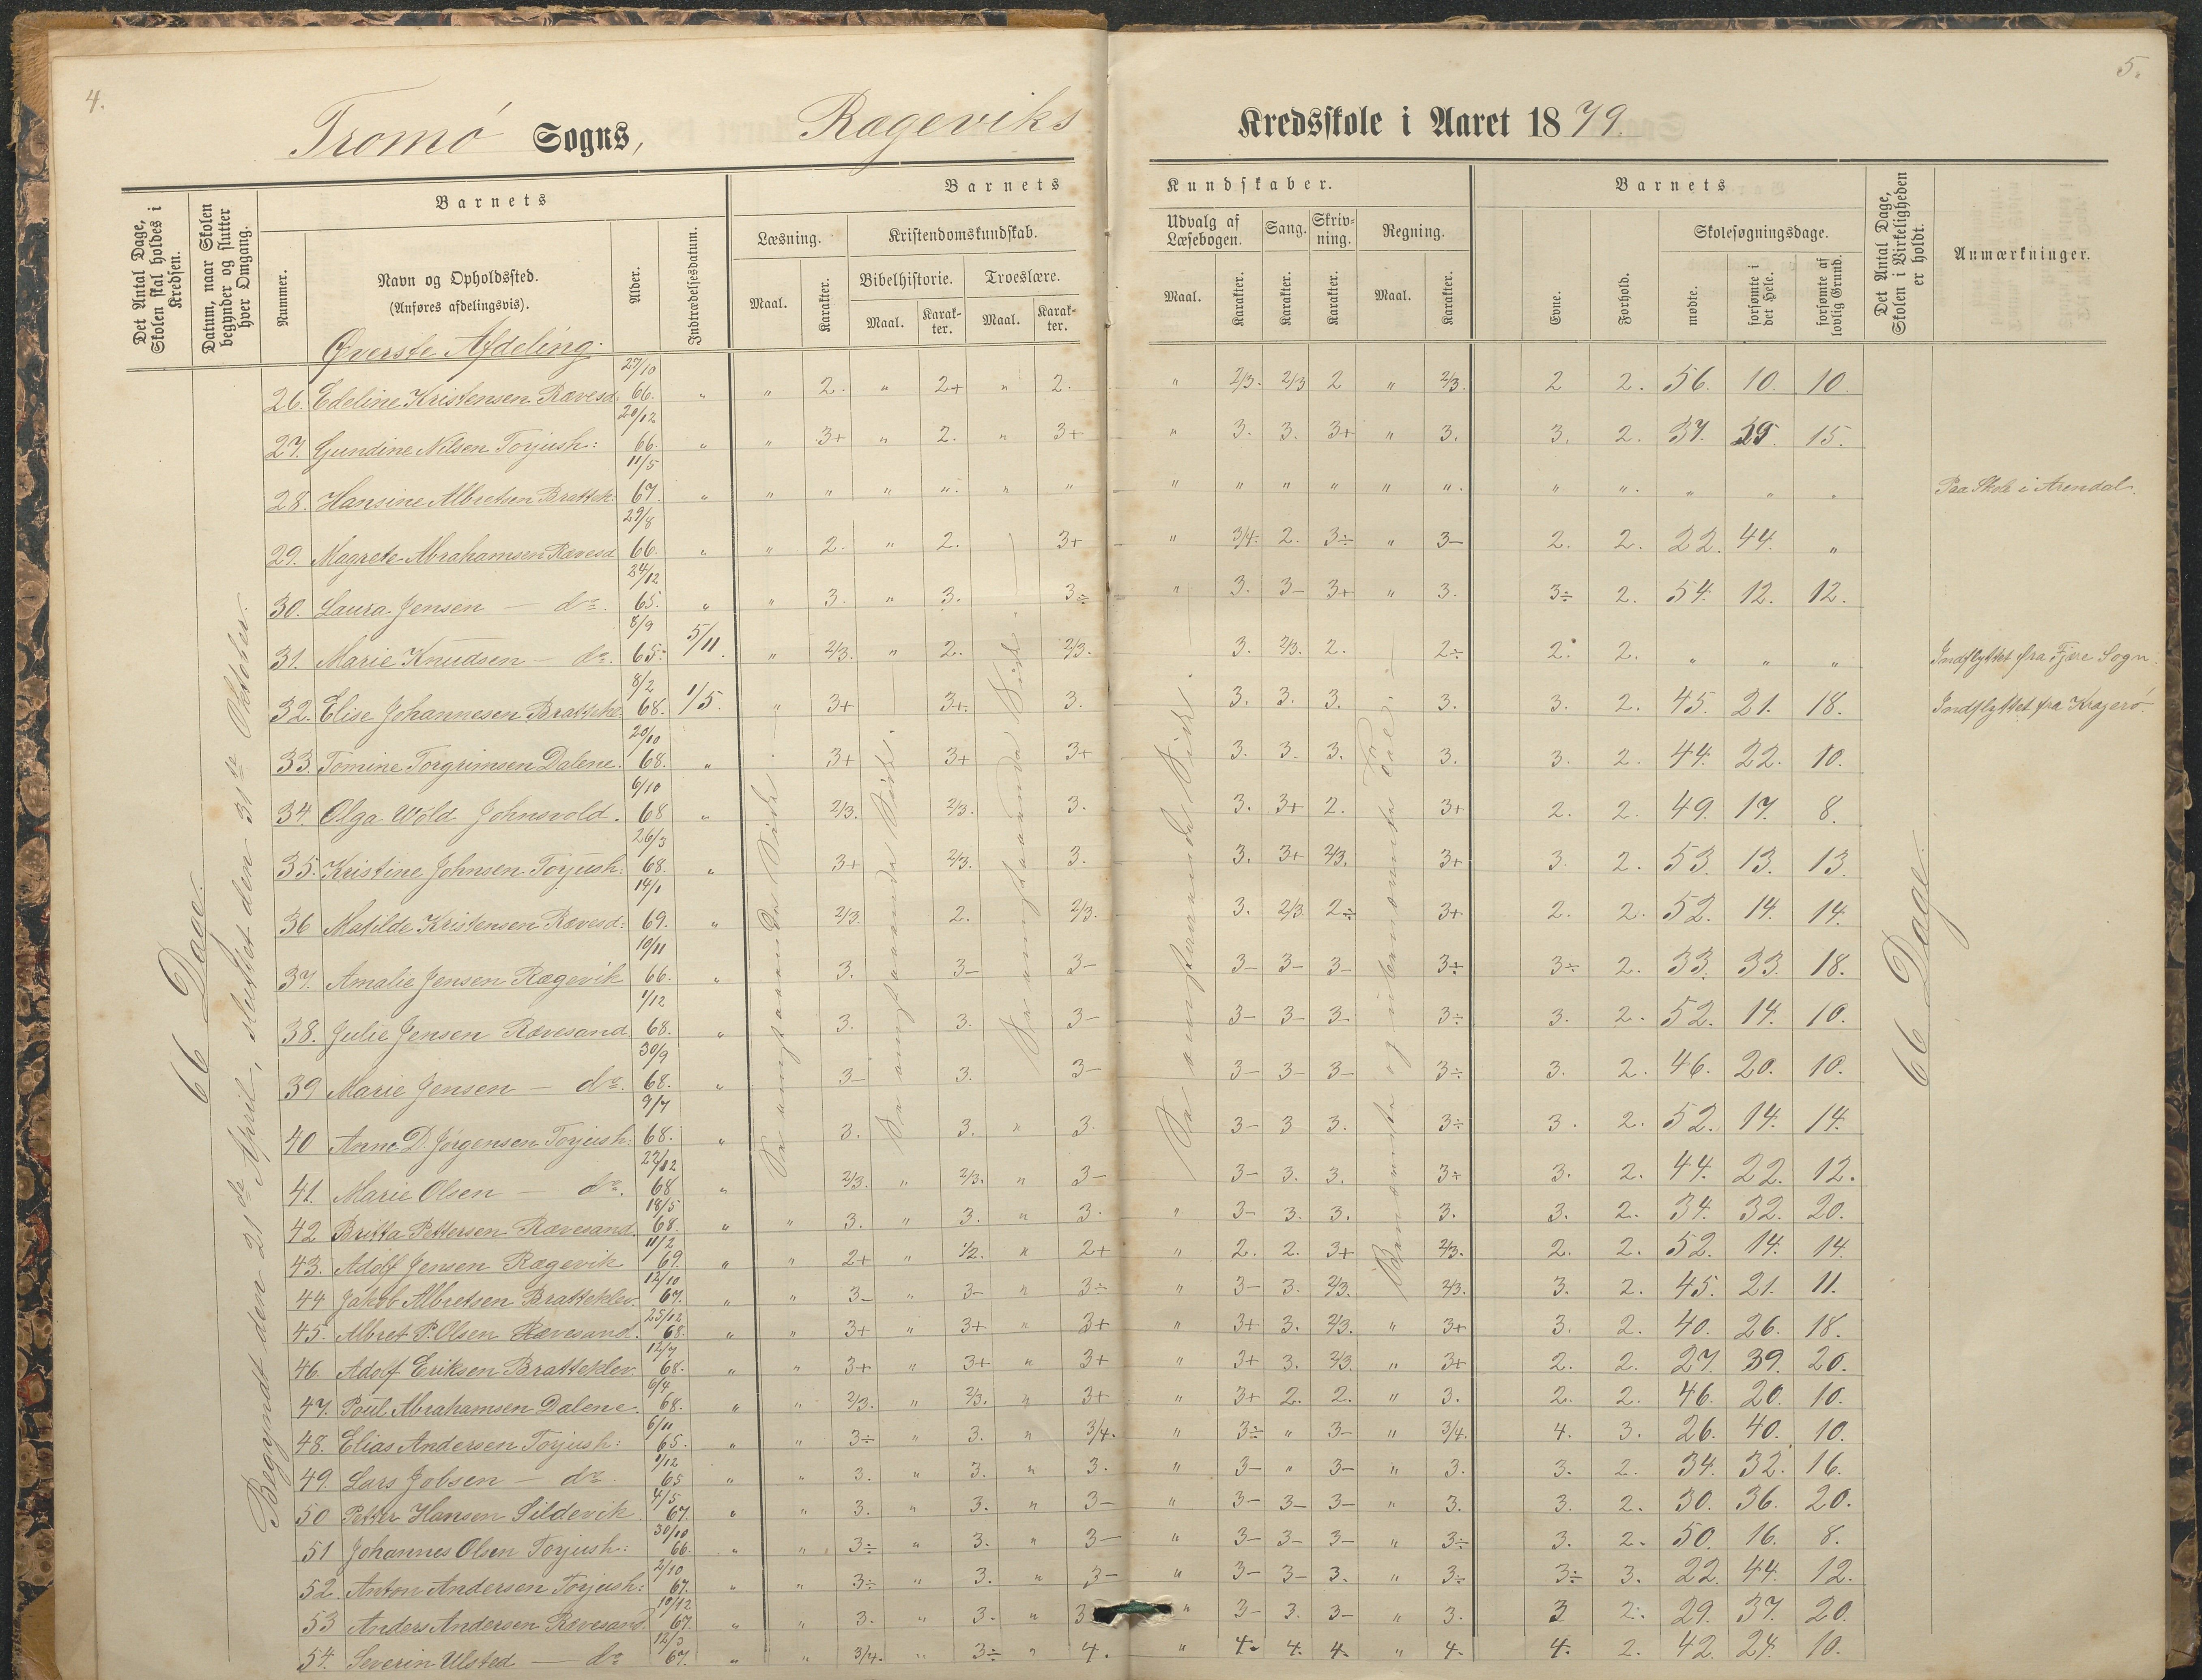 4.
5.
Tromø Sogns, Rægeviks Kredsskole i Aaret 1879.
Det Antal Dage, Skolen skal holdes i Kredsen.
Datum, naar Skolen begynder og slutter hver Omgang.
Barnets
Nummer.
Navn og Opholdssted.
(Anføres afdelingsvis).
Alder.
Indtrædelsesdatum.
Barnets Kundskaber.
Læsning.
Kristendomskundskab.
Bibelhistorie.
Troeslære.
Maal. Karakter. Maal. Karakter. Maal. Karakter.
Udvalg af Læsebogen.
Sang.
Skrivning.
Regning.
Maal. Karakter. Karakter. Karakter. Maal. Karakter.
Barnets
Evne.
Forhold.
Skolesøgningsdage.
mødte.
forsømte i det Hele.
forsømte af lovlig Grund.
Det Antal Dage, Skolen i Virkeligheden er holdt.
Anmærkninger.
Øverste Afdeling.
66 Dage.
Begyndt den 21de April, sluttet den 31te Oktober.
66 Dage
26. Edeline Kristensen Rævesd: 27/10 66. " " 2. " 2+ " 2. " 2/3. 2/3 2 " 2/3. 2 2. 56. 10. 10.
27. Gundine Nilsen Torjush: 20/12 66. " " 3+ " 2. " 3+ " 3. 3. 3+ " 3. 3. 2. 37. 29. 15.
28. Hansine Albretsen Brattek: 11/5 67. " " " " " " " " " " " " " " " " " " Paa Skole i Arendal.
29. Magrete Abrahamsen Rævesd 29/8 66. " " 2. " 2. 3+ " 3/4. 2. 3÷ " 3- 2. 2. 22. 44. "
30. Laura Jensen — do. 24/12 65. " " 3. " 3. 3÷ " 3. 3- 3+ " 3. 3÷ 2. 54. 12. 12.
31. Marie Knudsen — do. 8/9 65. 5/11. " 2/3. " 2. 2/3. 3. 2/3. 2. 2÷ 2. 2. " " " Indflyttet fra Fjære Sogn.
32. Elise Johannesen Brattekl. 8/2 68. 1/5. " 3+ 3+. 3. 3. 3. 3. 3. 3. 2. 45. 21. 18. Indflyttet fra Kragerø.
33. Tomine Torgrimsen Dalene. 20/10 68. " 3+ 3+ 3+ 3. 3. 3. 3. 3. 2. 44. 22. 10.
34. Olga Wold Johnsvold. 6/10 68 " 2/3. 2/3. 3. 3. 3+ 2. 3+ 2. 2. 49. 17. 8.
35. Kristine Johnsen Torjush: 26/3 68. " 3+ 2/3. 3. 3. 3+ 2/3. 3+ 3. 2. 53. 13. 13.
36 Matilde Kristensen Rævesd: 14/1 69. " 2/3. 2. 2/3. 3. 2/3. 2÷ 3+ 2. 2. 52. 14. 14.
37. Amalie Jensen Rægevik 10/11 66. " 3. 3- 3- 3- 3- 3- 3÷ 3÷ 2. 33. 33. 18.
38. Julie Jensen Rævesand 1/12 68. " 3. 3. 3- 3- 3- 3. 3÷ 3. 2. 52. 14. 10.
39 Marie Jensen — do. 30/9 68. " 3- 3. 3- 3- 3- 3- 3÷ 3. 2. 46. 20. 10.
40 Anne D. Jørgensen Torjush: 9/7 68. " 3. 3. " 3. 3- 3 3. 3÷ 3. 2. 52. 14. 14.
41. Marie Olsen — do. 22/12 68 " 2/3. " 2/3. " 3- 3- 3. 3. 3÷ 3. 2. 44. 22. 12.
42 Britta Pettersen Rævesand. 18/5 68. " " 3. " 3. " 3. " 3- 3. 3. 3. 3. 2. 34. 32. 20.
43. Adolf Jensen Rægevik 11/2 69. " " 2+ " 1/2. " 2+ " 2. 2. 3+ 2/3. 2. 2. 52. 14. 14.
44 Jakob Albretsen Bratteklev. 12/10 67. " " 3- " 3- " 3÷ " 3- 3. 2/3. 2/3. 3. 2. 45. 21. 11.
45. Albret P. Olsen Rævesand. 25/12 68. " " 3+ " 3+ " 3+ " 3+ 3. 2/3. " 3+ 3. 2. 40. 26. 18.
46. Adolf Eriksen Bratteklev. 12/7 68. " " 3+ " 3+ " 3+ " 3+ 3. 2/3. " 3+ 2. 2. 27. 39. 20.
47. Poul Abrahamsen Dalene. 6/4 68. " " 2/3. " 2/3. " 3+ " 3+ 2. 2. " 3. 2. 2. 46. 20. 10.
48. Elias Andersen Torjush: 6/11 65. " " 3÷ " 3. " 3/4. " 3÷ " 3- " 3/4. 4. 3. 26. 40. 10.
49. Lars Jobsen — do. 1/12 65 " " 3. " 3. " 3. " 3- " 3- " 3. 3. 2. 34. 32. 16.
50 Petter Hansen Sildevik 4/5 67. " " 3. " 3. " 3- " 3- 3- 3- " 3. 3. 2. 30. 36. 20.
51 Johannes Olsen Torjush: 30/10 66. " " 3÷ " 3. " 3- " 3- 3- 3- " 3÷ 3. 2. 50. 16. 8.
52. Anton Andersen Torjush: 2/10 67. " " 3÷ " 3. " 3- " 3- 3- 3. " 3÷ 3÷ 3. 22. 44. 12.
53 Anders Andersen Rævesand. 10/12 67. " " 3. " 3. " 3 " 3- 3. 3- " 3. 3 2. 29. 37. 20.
54. Severin Ulsted — do 12/3 67. " " 3/4. " 3÷ " 4. " 4. 4. 4. " 4. 4. 2. 42. 24. 10.